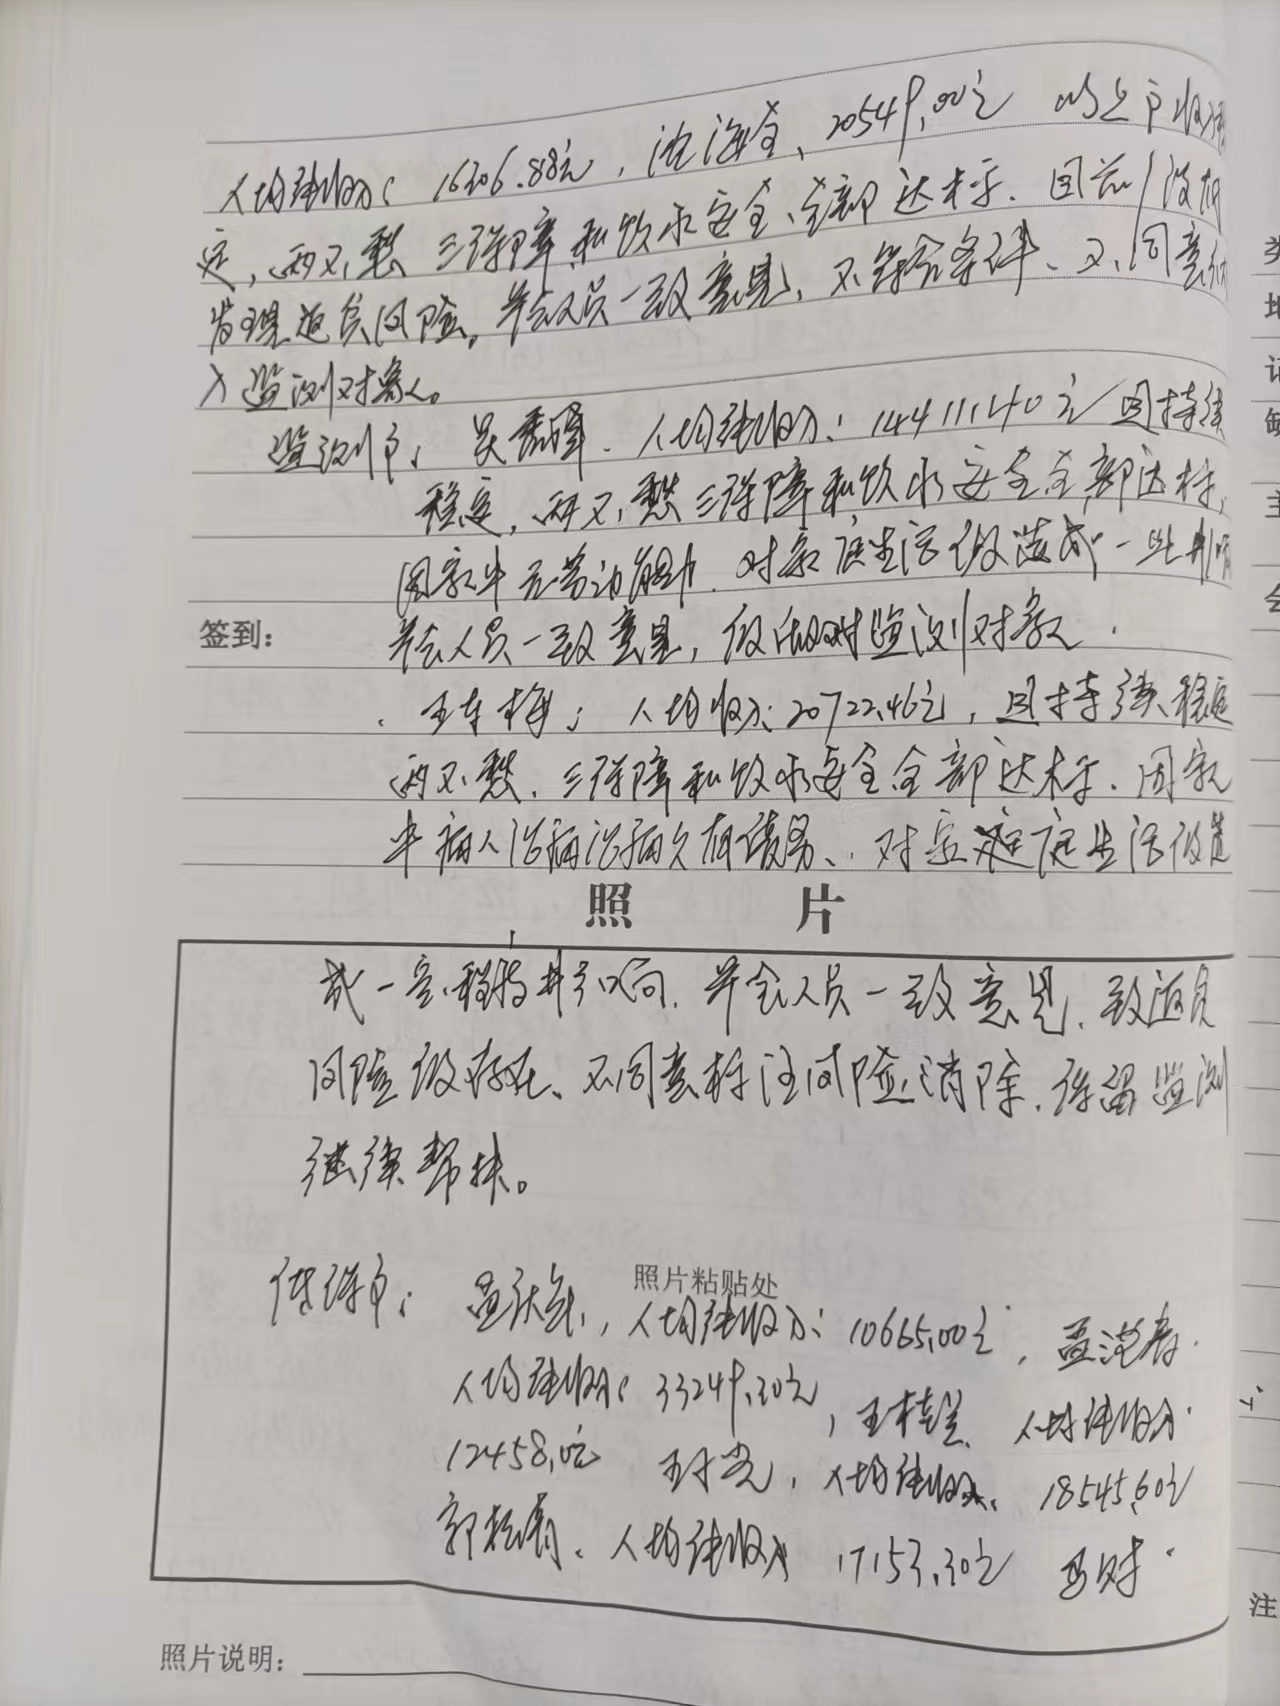 人均纯收入: 16306.88元, 沈海全、20549.00元 以上户收入持续
定, 两不愁 三保障和饮水安全、全部达标. 因为 没有
发现返贫风险, 参会人员一致意见, 不符合条件、不同意纳
入监测对象。
监测户: 吴秀峰. 人均纯收入: 14411.40元 且持续
稳定, 两不愁三保障和饮水安全全部达标,
因家中无劳动能力. 对家庭生活仍造成一些影响
签到: 参会人员一致意见, 仍做对监测对象.
王车梅; 人均收入: 20722.46元, 且持续稳定
两不愁. 三保障和饮水安全全部达标. 因家
中病人治病治病欠有债务、. 对家庭庭生活仍造
照 片
成一定影响. 参会人员一致意见, 致返贫
风险仍存在、不同意标注风险消除. 保留监测
继续帮扶。
照片粘贴处
低保户: 人均纯收入: 10665.00元, 孟
人均纯收入: 33249.30元, 王桂兰 人均纯收入
12458.0元 人均纯收入、18545.60元
郭松青、人均纯收入 17153.30元 马
照片说明:
类
地
记
主
会
注